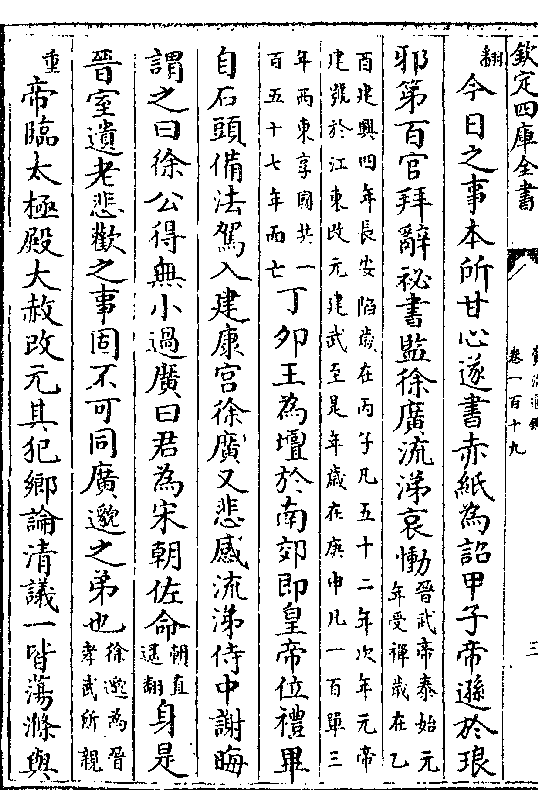 欽定四庫全書
資治通鑑
卷一百十九
三
翻今日之事本所甘心遂書赤紙為詔甲子帝遜於琅
邪第百官拜辭祕書監徐廣流涕哀慟晉武帝泰始元
年受禪歲在乙
酉建興四年長安陷歲在丙子凡五十二年次年元帝
建號於江東改元建武至是年歲在庚申凡一百單三
年西東享國共一
百五十七年而亡丁卯王為壇於南郊即皇帝位禮畢
自石頭備法駕入建康宮徐廣又悲感流涕侍中謝晦
謂之曰徐公得無小過廣曰君為宋朝佐命朝直
遥翻身是
晉室遺老悲歡之事固不可同廣邈之弟也徐邈為晉
孝武所親
重帝臨太極殿大赦改元其犯鄉論清議一皆蕩滌與